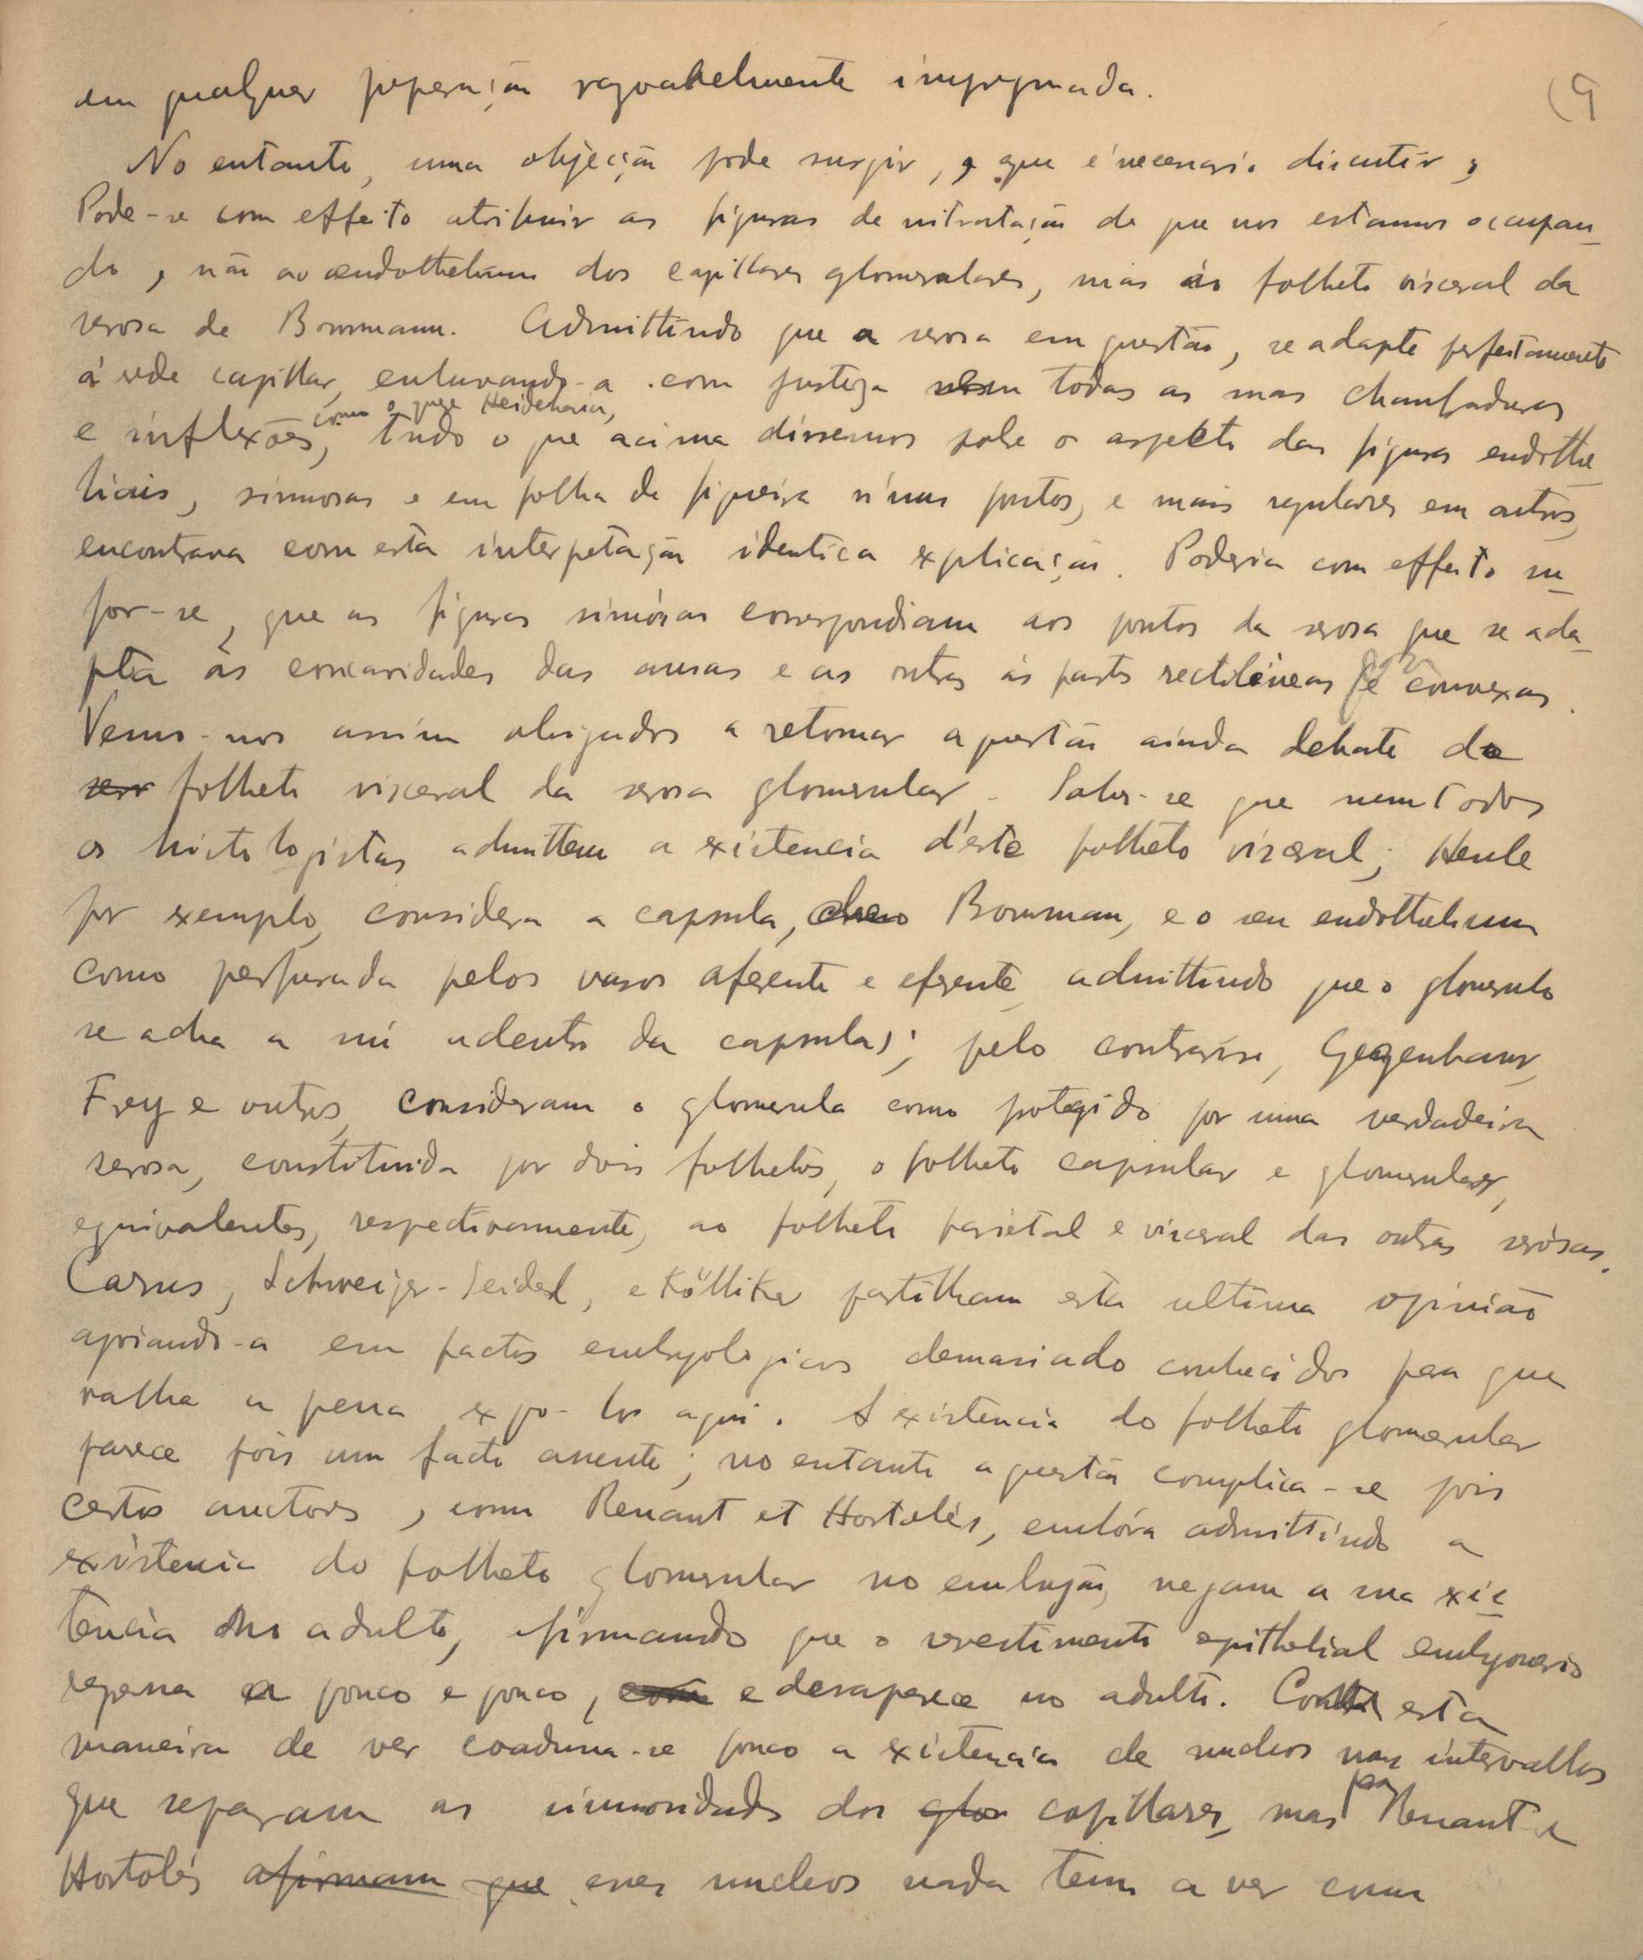 em qualquer preparação rasoavelmente impregnada.
(9
No entanto, uma objecção pode surgir, e que é necessario discutir,
Pode-se com effeito atribuir as figuras de nitratação de que nos estamos occupan-
do, não ao endothelium dos capillares glomerulares, mas ao folheto visceral da
serosa de Bowmann. Admittindo que a serosa em questão, se adapte perfeitamente
á rede capillar, enluvando-a com justeza em todas as suas chanfraduras
como o quer Heidenhain,
e inflexões, tudo o que acima dissemos sobre o aspecto das figuras endothe-
liais, sinuosas e em folha de figueira n'uns pontos, e mais regulares em outros,
encontrava com esta interpetação identica explicação. Poderia com effeito su-
por-se, que as figuras sinuosas correspondiam aos pontos da serosa que se ada-
pta ás concavidades das ansas e as outras ás partes rectilineas e convexas.
Vemo-nos assim obrigados a retomar a questão ainda debate do
ser folheto visceral da serosa glomerular. Sabe-se que nem todos
os histologistas admittem a existencia d'este folheto visceral; Henle
por exemplo, considera a capsula, de Bowman, e o seu endothelium
como perfurada pelos vasos aferente e eferente admittindo que o glomerulo
se acha a nú adentro da capsula; pelo contrario, Gegenbaur,
Frey e outros, consideram o glomerulo como protegido por uma verdadeira
serosa, constituida por dois folhetos, o folheto capsular e glomerular,
equivalentes, respectivamente, ao folheto parietal e visceral das outras serósas.
Carus, Schweiger-Seidel, e Kölliker partilham esta ultima opinião
apoiando-a em factos embryologicos demasiado conhecidos para que
valha a pena expo-los aqui. A existencia do folheto glomerular
parece pois um facto assente; no entanto a questão complica-se pois
certos auctores, como Renaut et Hortolés, embóra admittindo a
existencia do folheto glomerular no embryão, negam a sua exis-
tencia no adulto, afirmando que o revestimento epithelial embryonario
regressa a pouco e pouco, com e desaparece no adulto. Com esta
maneira de ver coaduna-se pouco a existencia de nucleos nos intervallos
que separam as sinuosidades dos glo capillares, mas para Renaut e
Hortolés afirmam que esses nucleos nada tem a ver com